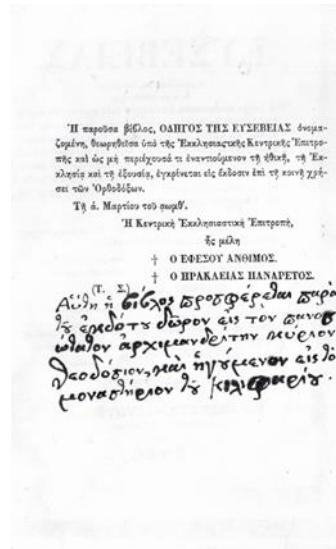 Ἡ παροῦσα βίβλος, ΟΔΗΓΟΣ ΤΗΣ ΕΥΣΕΒΕΙΑΣ ὀνομα-
ζομένη, θεωρηθεῖσα ὑπὸ τῆς Ἐκκλησιαστικῆς Κεντρικῆς Ἐπιτρο-
πῆς καὶ ὡς μὴ περιέχουσά τι ἐναντιούμενον τῇ ἠθικῇ, τῇ Ἐκ-
κλησίᾳ καὶ τῇ ἐξουσίᾳ, ἐγκρίνεται εἰς ἔκδοσιν ἐπὶ τῇ κοινῇ χρή-
σει τῶν Ὀρθοδόξων.
Τῇ ά. Μαρτίου τοῦ αωμθ΄.
Ἡ Κεντρικὴ Ἐκκλησιαστικὴ Ἐπιτροπή,
ἧς μέλη
† Ο ΕΦΕΣΟΥ ΑΝΘΙΜΟΣ.
† Ο ΗΡΑΚΛΕΙΑΣ ΠΑΝΑΡΕΤΟΣ.
(Τ. Σ.)
Αὕτη ἡ βίβλος προσφέρεται παρὰ
τοῦ ἐκδότου δῶρον εἰς τὸν πανοσ
ιώτατον ἀρχιμανδρίτην κύριον
Θεοδόσιον, καὶ ἡγούμενον εἰς τὸ
μοναστήριον τοῦ